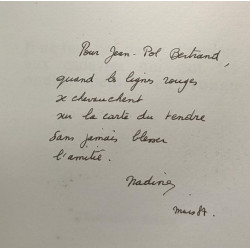 Pour Jean-Pol Bertrand,
quand les lignes rouges
se chevauchent
sur la carte du tendre
sans jamais blesser
l'amitié.
Nadine
mars 87.